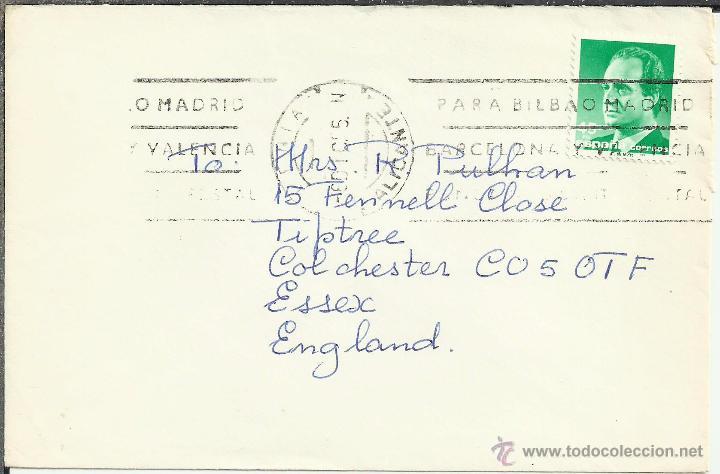 LO MADRID
PARA BILBAO MADRID
Y VALENCIA
BARCELONA Y VALENCIA
POSTAL
ALICANTE
España correos
To: Mrs. K. Pullran
15 Fennell Close
Tiptree
Colchester CO5 OTF
Essex
England.
www.todocoleccion.net